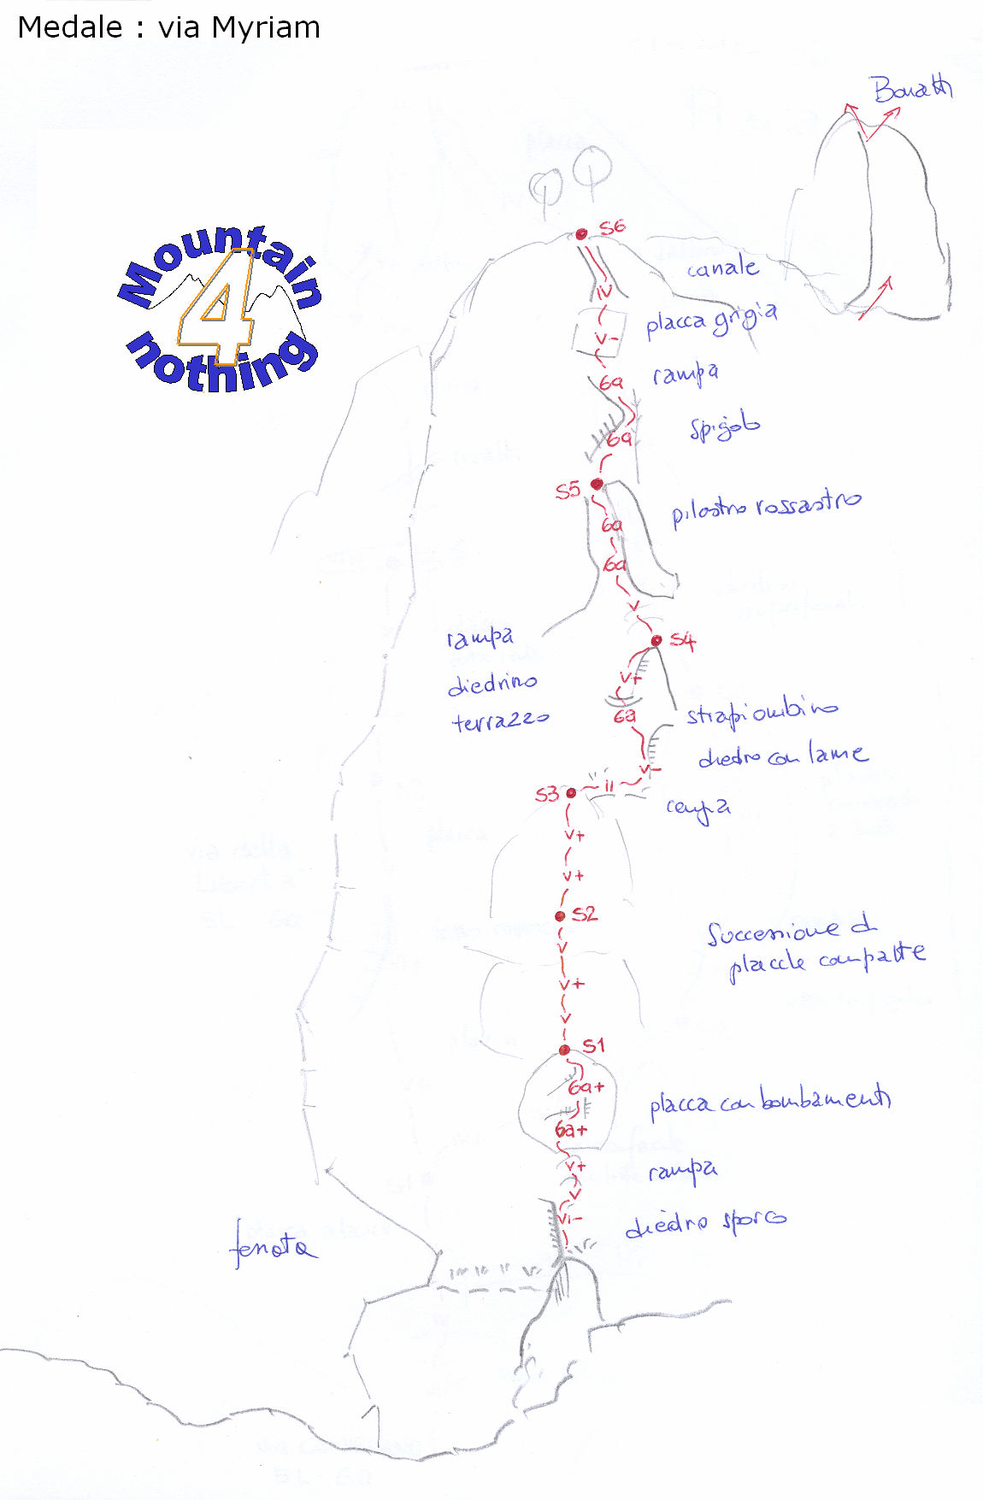 Medale : via Myriam
Bonatti
Mountain
4
nothing
S6
canale
IV
placca grigia
V-
rampa
6a
spigolo
6a
S5
pilastro rossastro
6a
6a
V
rampa
diedrino
terrazzo
S4
V+
6a
strapiombino
diedro con lame
V-
II
S3
cengia
V+
V+
S2
V
Successione di
placche compatte
V+
V
S1
6a+
placca con bombamenti
6a+
V+
rampa
V
VI-
diedro sporco
ferrata